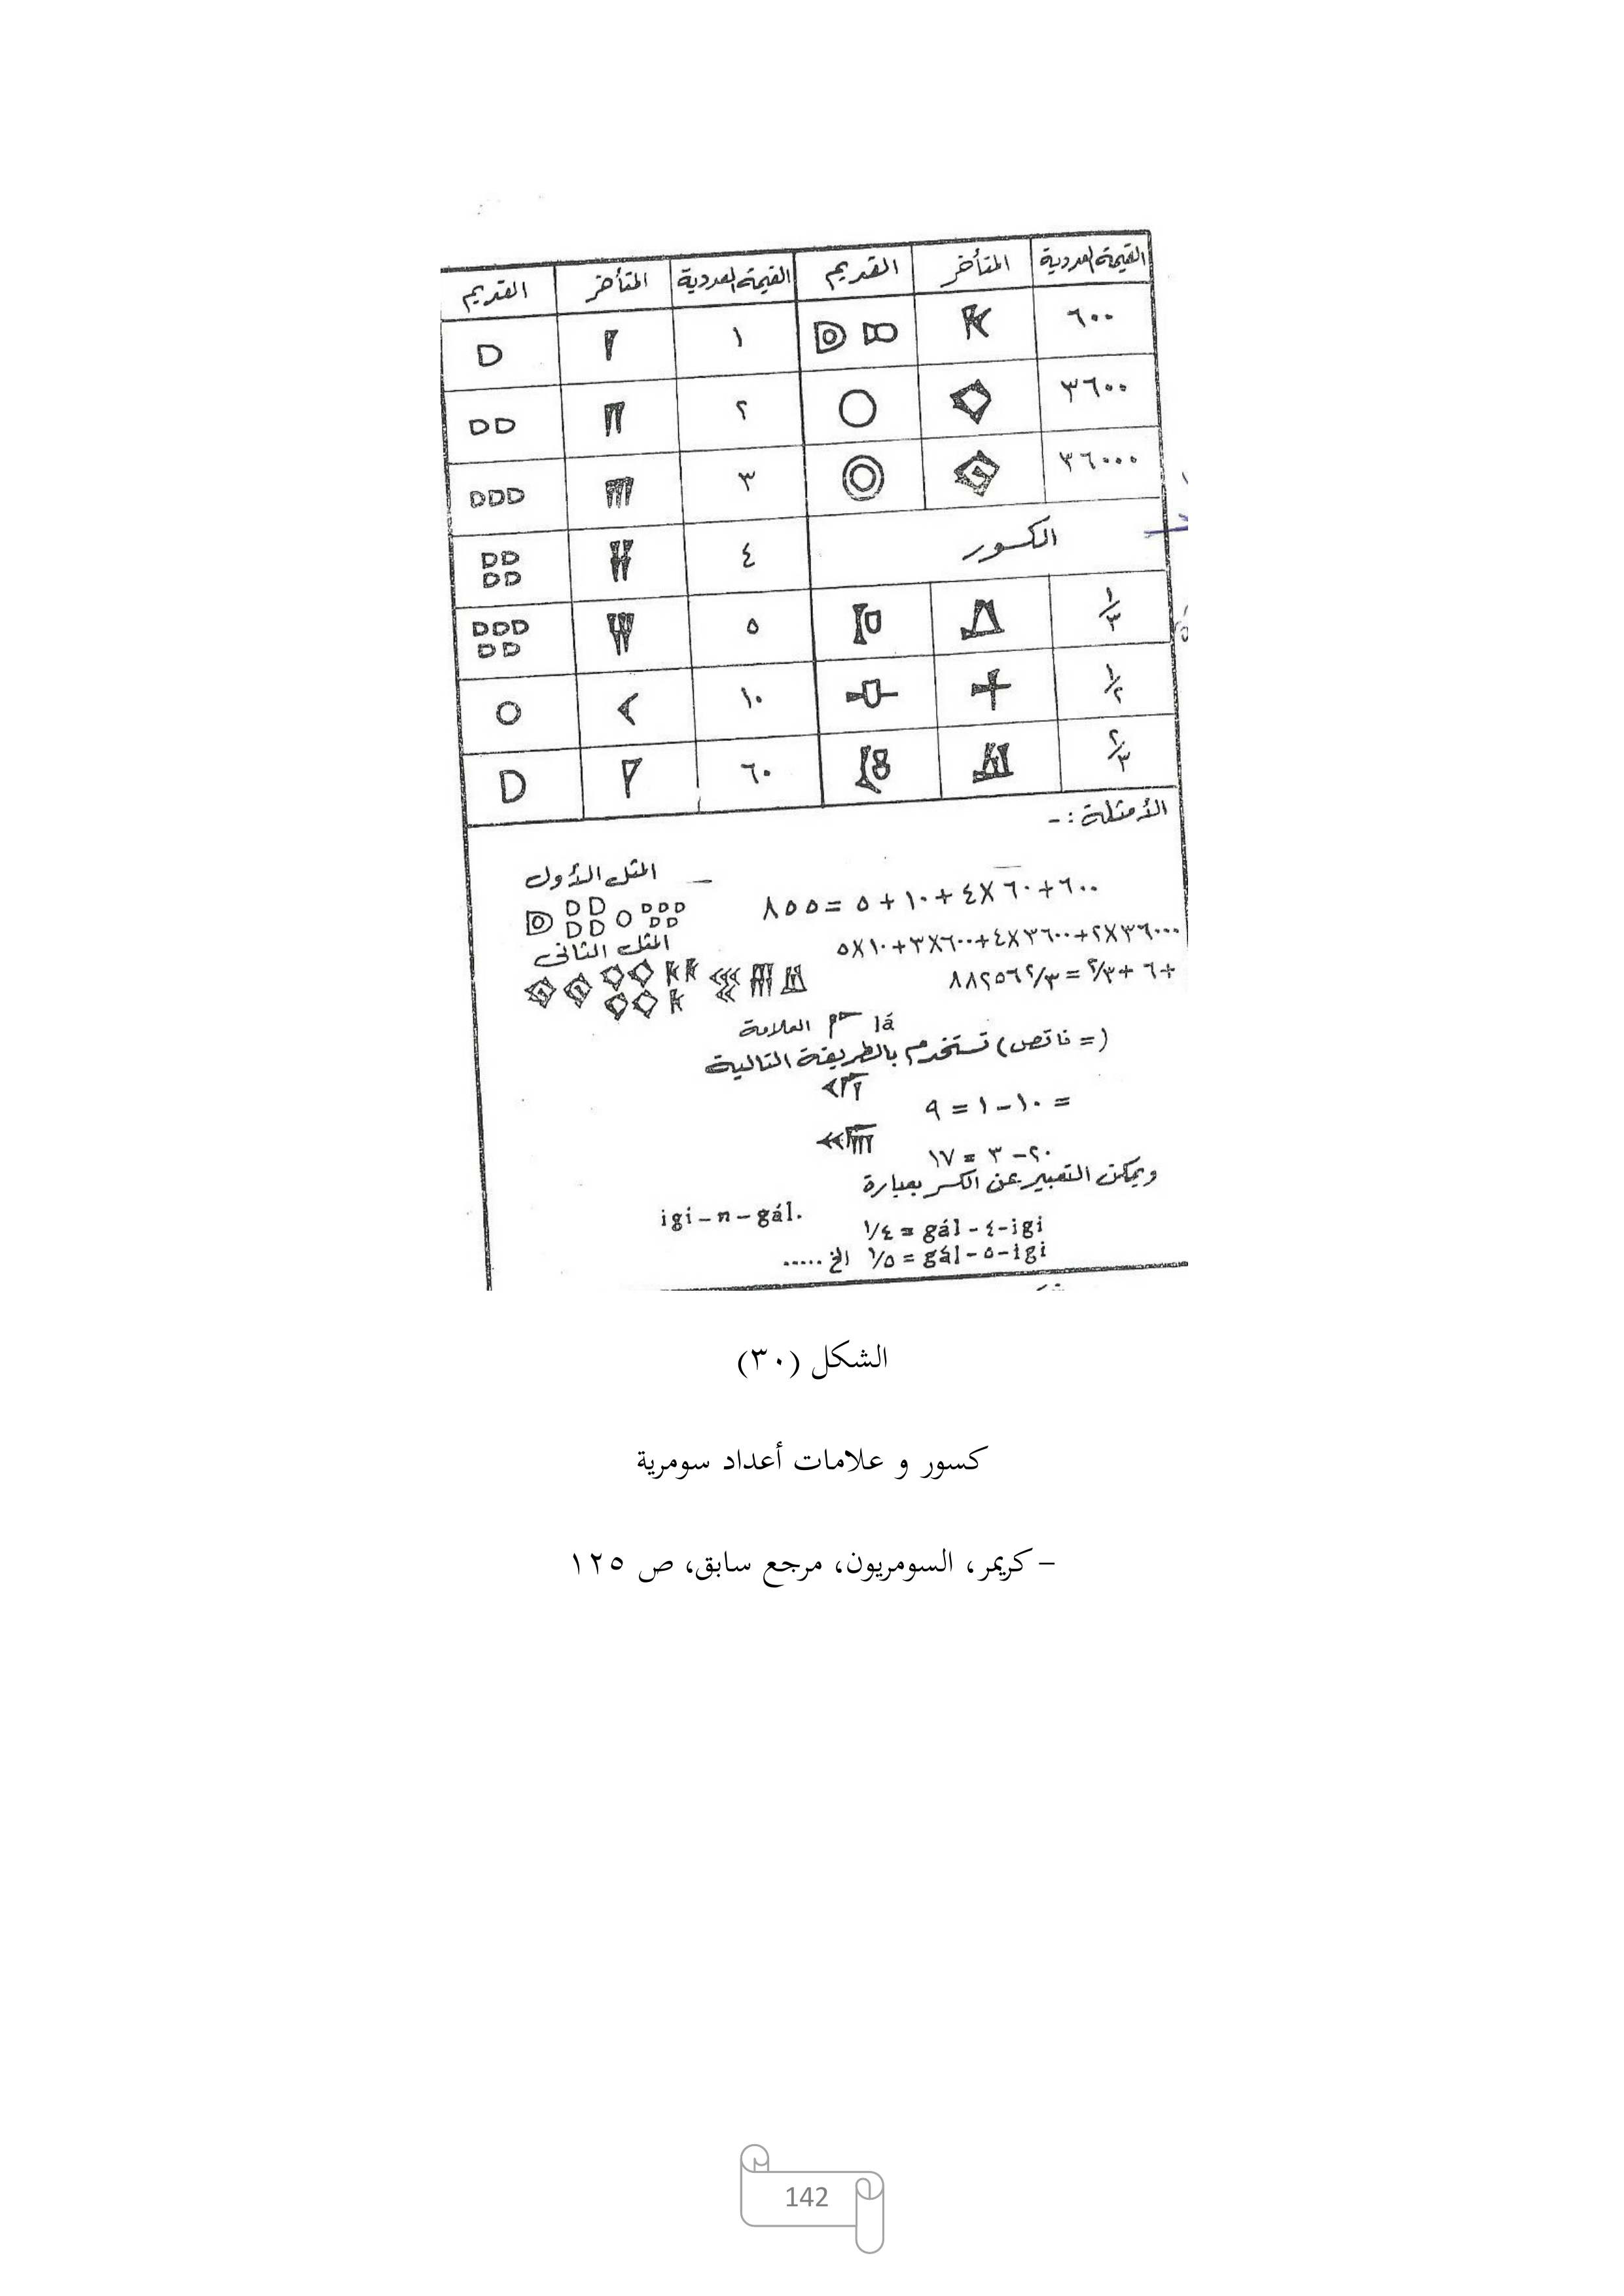 القيمة العددية المتأخر القديم القيمة العددية المتأخر القديم
٦٠٠ ١
٣٦٠٠ ٢
٣٦٠٠٠ ٣
الكسور ٤
١/٣ ٥
١/٢ ١٠
٢/٣ ٦٠
الأمثلة :-
المثل الأول –
٦٠٠+٦٠X٤+١٠+٥=٨٥٥
المثل الثاني
٣٦٠٠٠X٢+٣٦٠٠X٤+٦٠٠X٣+١٠X٥
+٦+٢/٣=٨٨٢٥٦٢/٣
العلامة lá
(= ناقص) تستخدم بالطريقة التالية
= ١٠-١=٩
٢٠-٣=١٧
ويمكن التعبير عن الكسر بعبارة
igi-n-gál.
igi-٤-gál = ١/٤
igi-٥-gál = ١/٥ الخ .....
الشكل (٣٠)
كسور و علامات أعداد سومرية
- كريمر، السومريون، مرجع سابق، ص ١٢٥
142